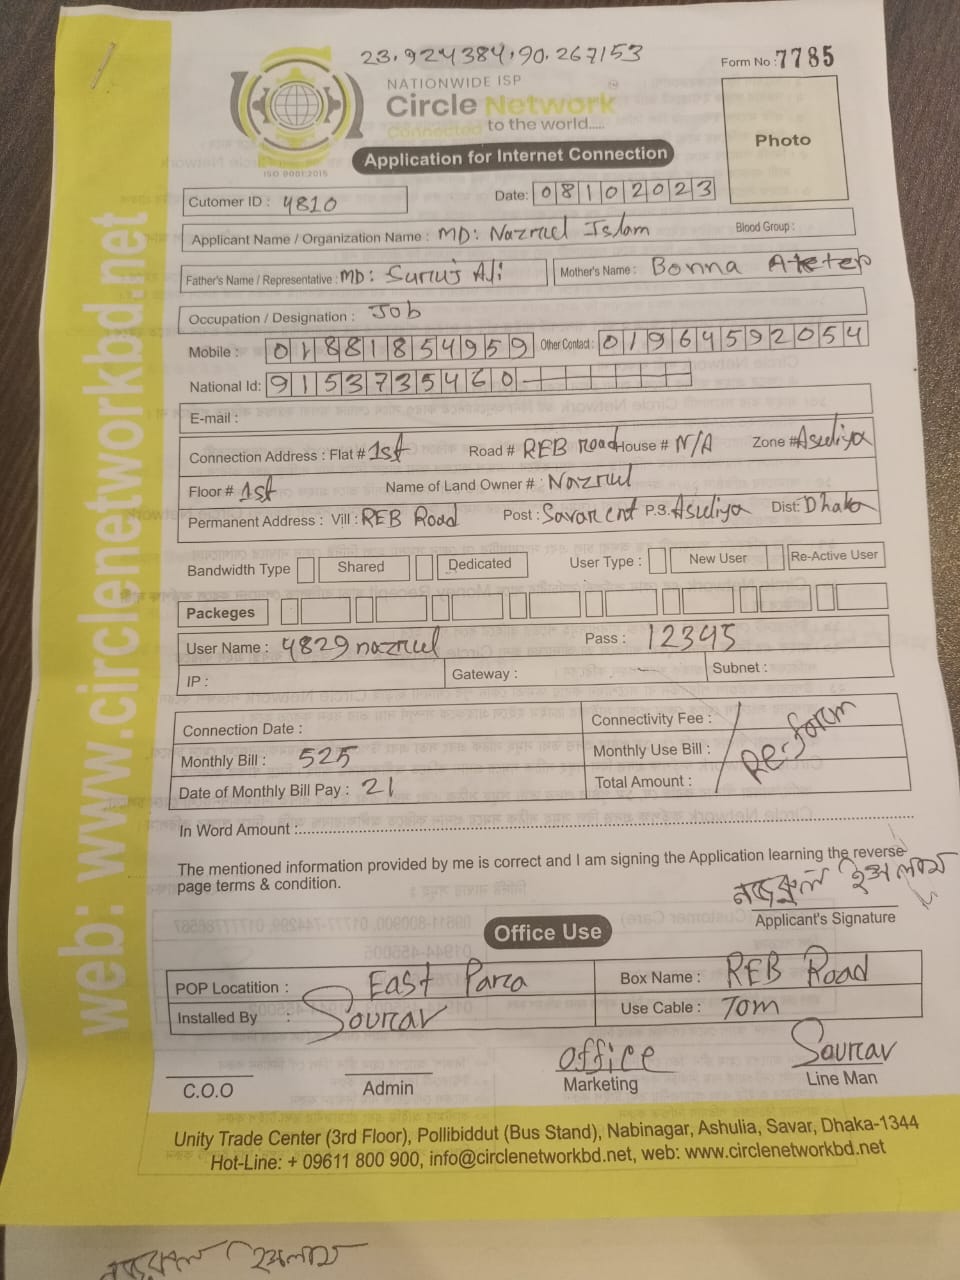 23.924384,90.267153
Form No : 7785
NATIONWIDE ISP
Circle Network
Connected to the world.....
ISO 9001:2015
Application for Internet Connection
Photo
Cutomer ID : 4810
Date: 08102023
Applicant Name / Organization Name : MD: Nazrul Islam Blood Group :
Father's Name / Representative : MD: Suruj Ali Mother's Name : Bonna Akter
Occupation / Designation : Job
Mobile : 01881854959 Other Contact : 01964592054
National Id: 9153735460
E-mail :
Connection Address : Flat # 1st Road # REB road House # N/A Zone # Asuliya
Floor # 1st Name of Land Owner # : Nazrul
Permanent Address : Vill : REB Road Post : Savar cent P.S. Asuliya Dist: Dhaka
Bandwidth Type Shared Dedicated User Type : New User Re-Active User
Packeges
User Name : 4829nazrul Pass : 12345
IP : Gateway : Subnet :
Connection Date : Connectivity Fee :
Monthly Bill : 525 Monthly Use Bill : Re-form
Date of Monthly Bill Pay : 21 Total Amount :
In Word Amount :
The mentioned information provided by me is correct and I am signing the Application learning the reverse
page terms & condition.
নজরুল ইসলাম
Applicant's Signature
Office Use
POP Locatition : East Para Box Name : REB Road
Installed By : Sourav Use Cable : 70m
office Sourav
C.O.O Admin Marketing Line Man
Unity Trade Center (3rd Floor), Pollibiddut (Bus Stand), Nabinagar, Ashulia, Savar, Dhaka-1344
Hot-Line: + 09611 800 900, info@circlenetworkbd.net, web: www.circlenetworkbd.net
web: www.circlenetworkbd.net
নজরুল ইসলাম